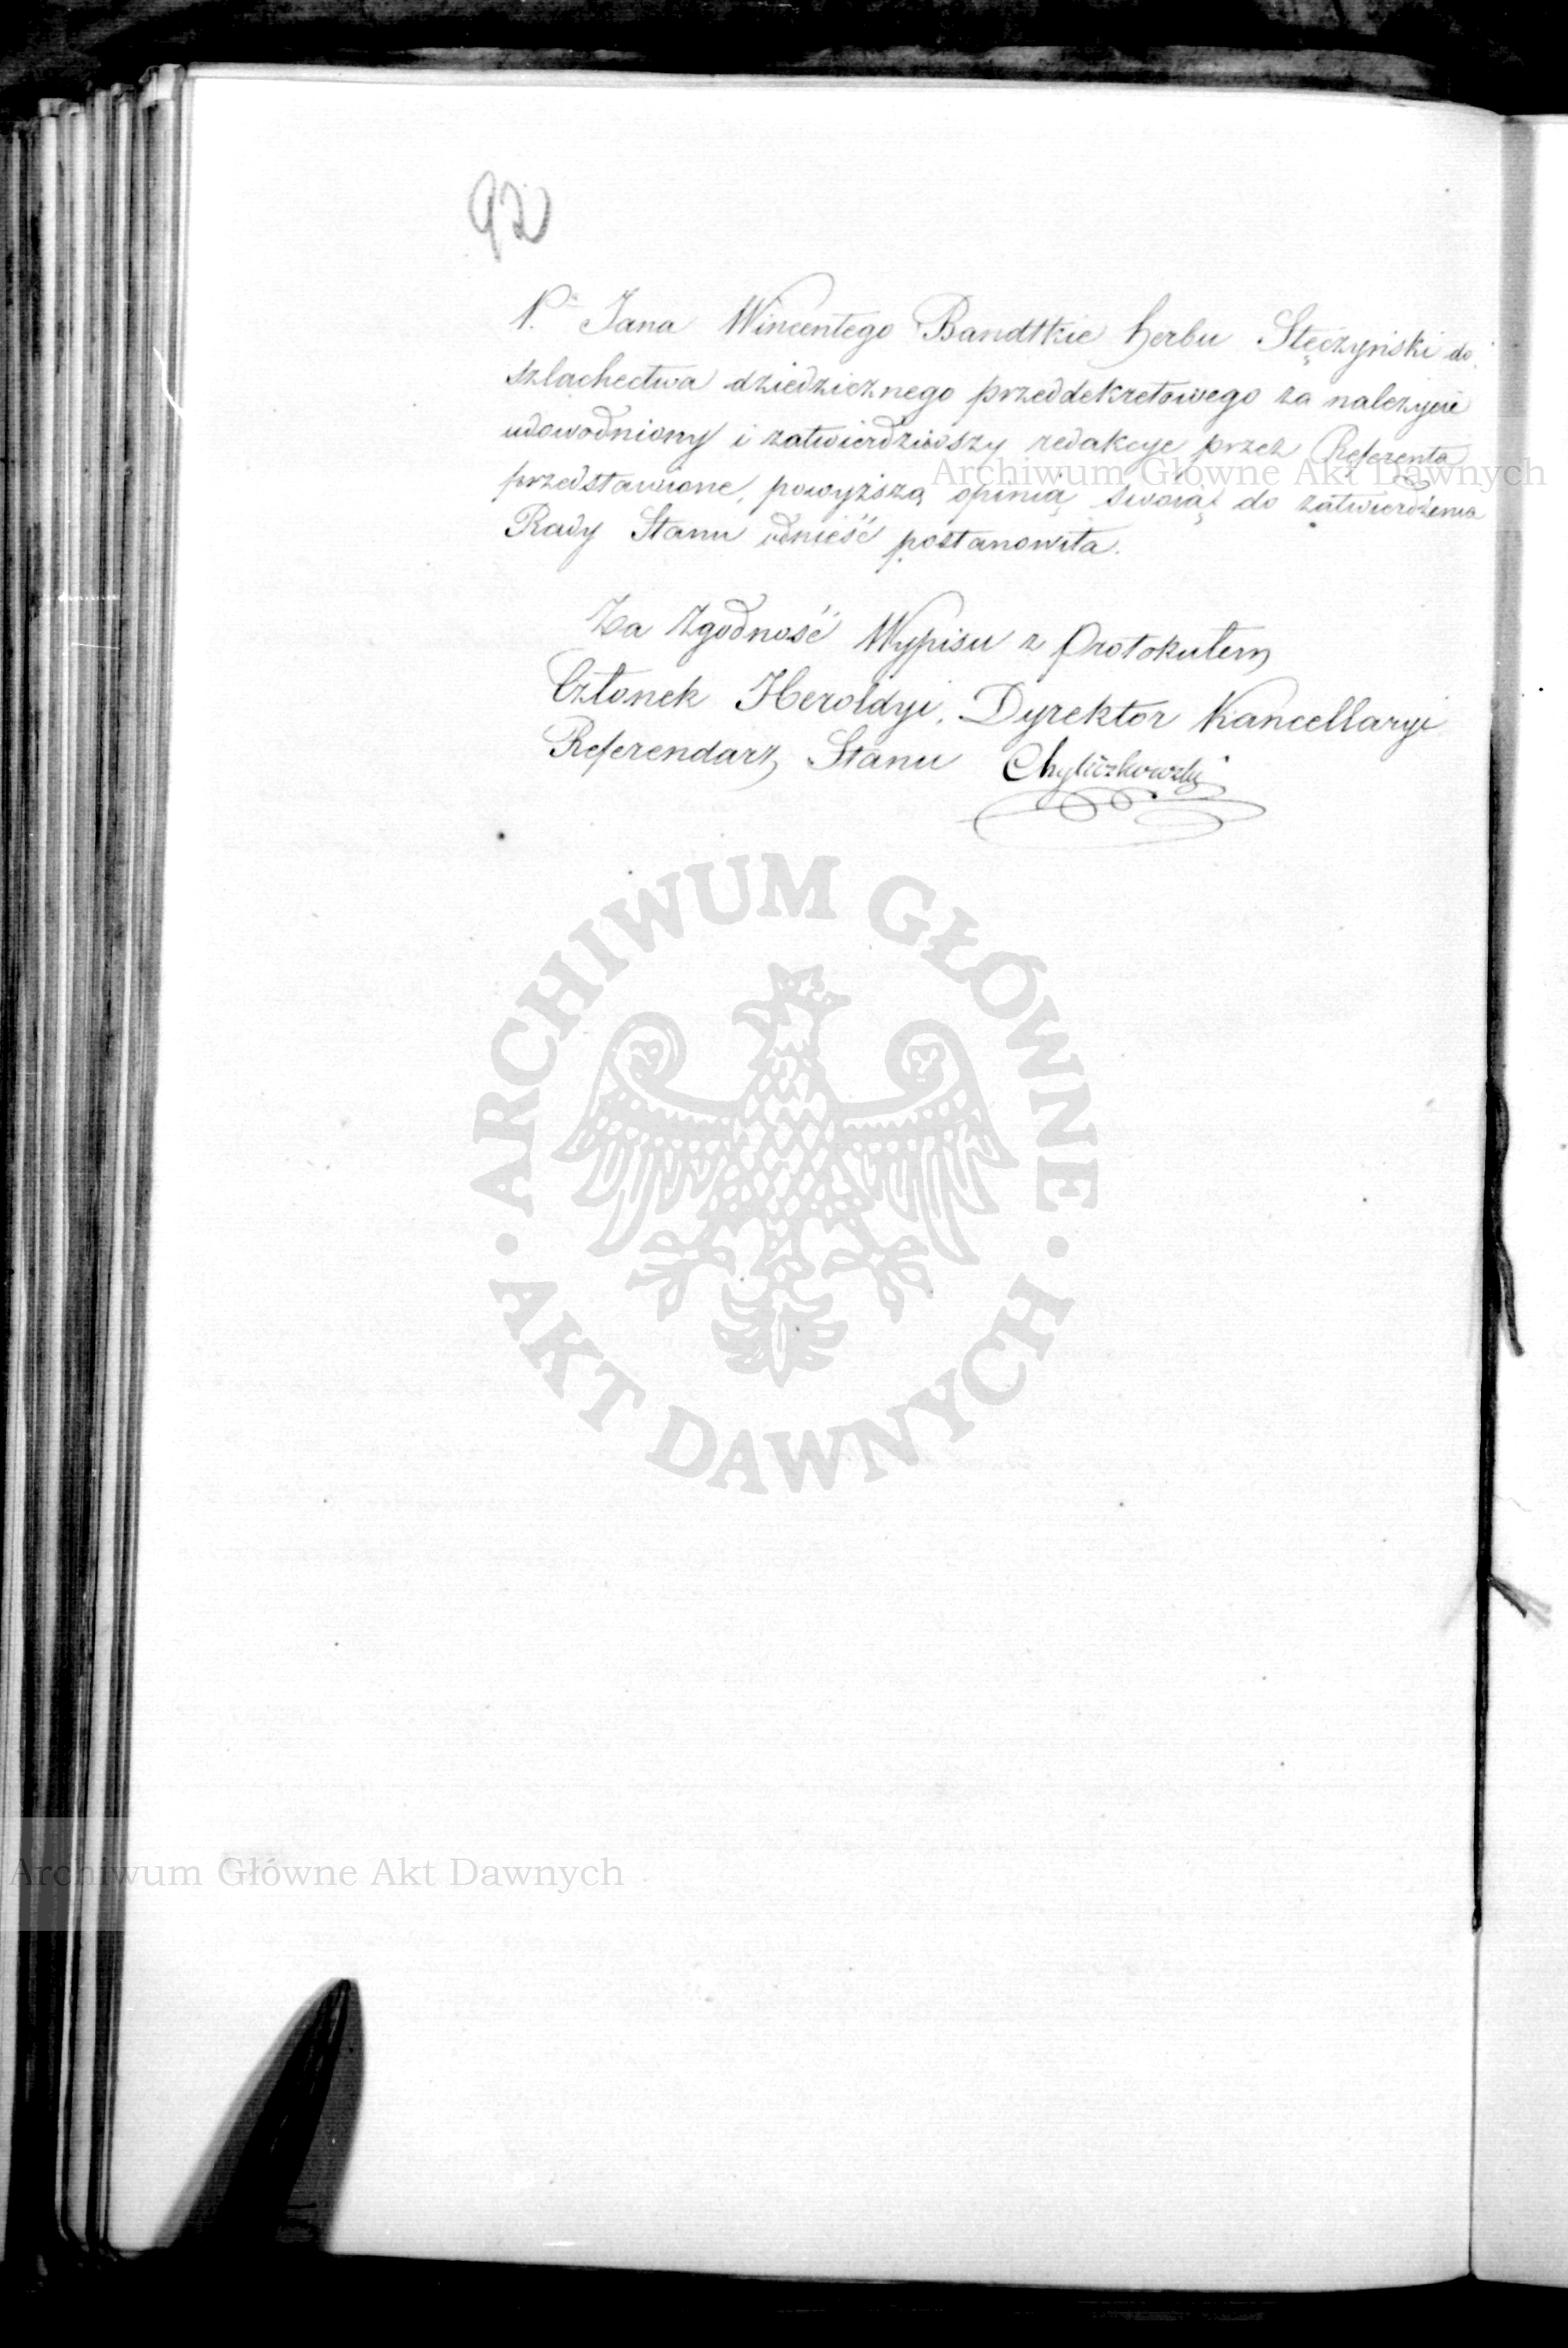 92
P.ⁿᵃ Jana Wincentego Bandtkie herbu Stęczyński do
szlachectwa dziedzicznego przeddekretowego za należycie
udowodniony i zatwierdziwszy redakcye przez Referenta
Archiwum Główne Akt Dawnych
przedstawione, powyższą opinią swoią do zatwierdzenia
Rady Stanu odnieść postanowiła.
Za Zgodność Wypisu z Protokułem
Członek Heroldyi, Dyrektor Kancellaryi
Referendarz Stanu Chyliczkowski
ARCHIWUM GŁÓWNE
AKT DAWNYCH
Archiwum Główne Akt Dawnych